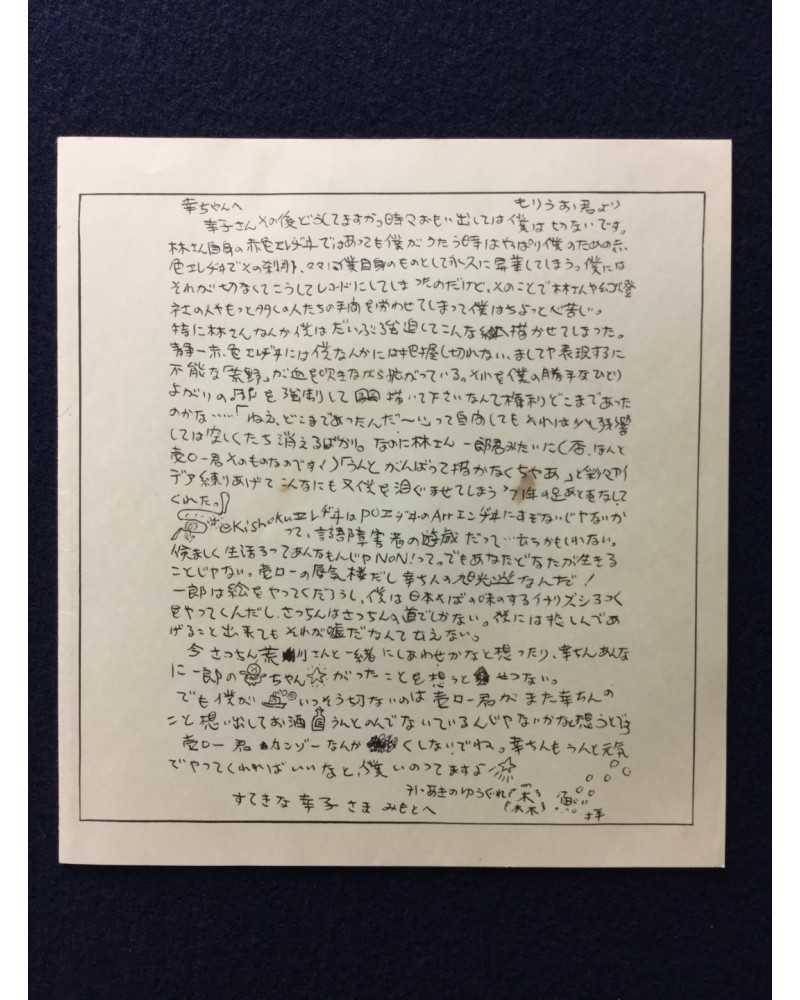 幸ちゃんへ もりうお君より
幸子さんその後どうしてますか。時々おもい出しては僕は切ないです。
林さん自身の赤色エレヂヰではあっても僕がうたう時はやっぱり僕のための赤
色エレヂヰでその刹那、々々に僕自身のものとして永久に昇華してしまう。僕には
それが切なくてこうしてレコードにしてしまったのだけど、そのことで林さんや幻燈
社の人やもっと多くの人たちの手を労わせてしまって僕はちょっと心苦しい。
特に林さんなんか僕はだいぶ強迫してこんな絵描かせてしまった。
赤色エレヂヰには僕なんかには把握し切れない、ましてや表現するに
不能な「荒野」が血を吹きながら拡がっている。それを僕の勝手なひとり
よがりの を強制して 描いて下さいなんて権利どこまであった
のかな……「ねえ、どこまであったんだ〜い」って自問しても それは少し残響
しては空しくたち消えるばかり。なのに林さん 一郎君みたいに(否、ほんと
壱ロー君そのものなのです!)「うんと がんばって描かなくちゃあ」と アイ
デア練りあげて こんなにも又僕を泪ぐませてしまう '71年の足あとをなして
くれた。
Kishokuエレヂヰは POエヂヰのArtエンヂヰにすぎないじゃないか
って、言語障害者の遊戯だって…かもしれない。
僕ましく生活るってあんなもんじゃNON!って。でもあなたどなたが生きる
ことじゃない。壱ローの蜃気楼だし幸ちゃんの なんだ!
一郎は絵をやってくだろうし、僕は日本そばの味のするイナリズシろっく
をやってくんだし、さっちんはさっちんの道でしかない。僕には悲しんであ
げること出来ても それが嘘だなんて云えない。
今さっちん荒 川さんと一緒にしあわせかなと想ったり、幸ちんあんな
に一郎の ちゃん がったことを想うと せつない。
でも僕が いっそう切ないのは壱ロー君がまた幸ちんの
こと想い出してお酒 うんとのんでないているんじゃないかなと想うとです
壱ロー君 カンゾーなんか くしないでね。幸ちんもうんと元気
でやってくれればいいなと、僕いのってますよ
あきのゆうぐれ 森 魚 拝
すてきな 幸子さま みもとへ